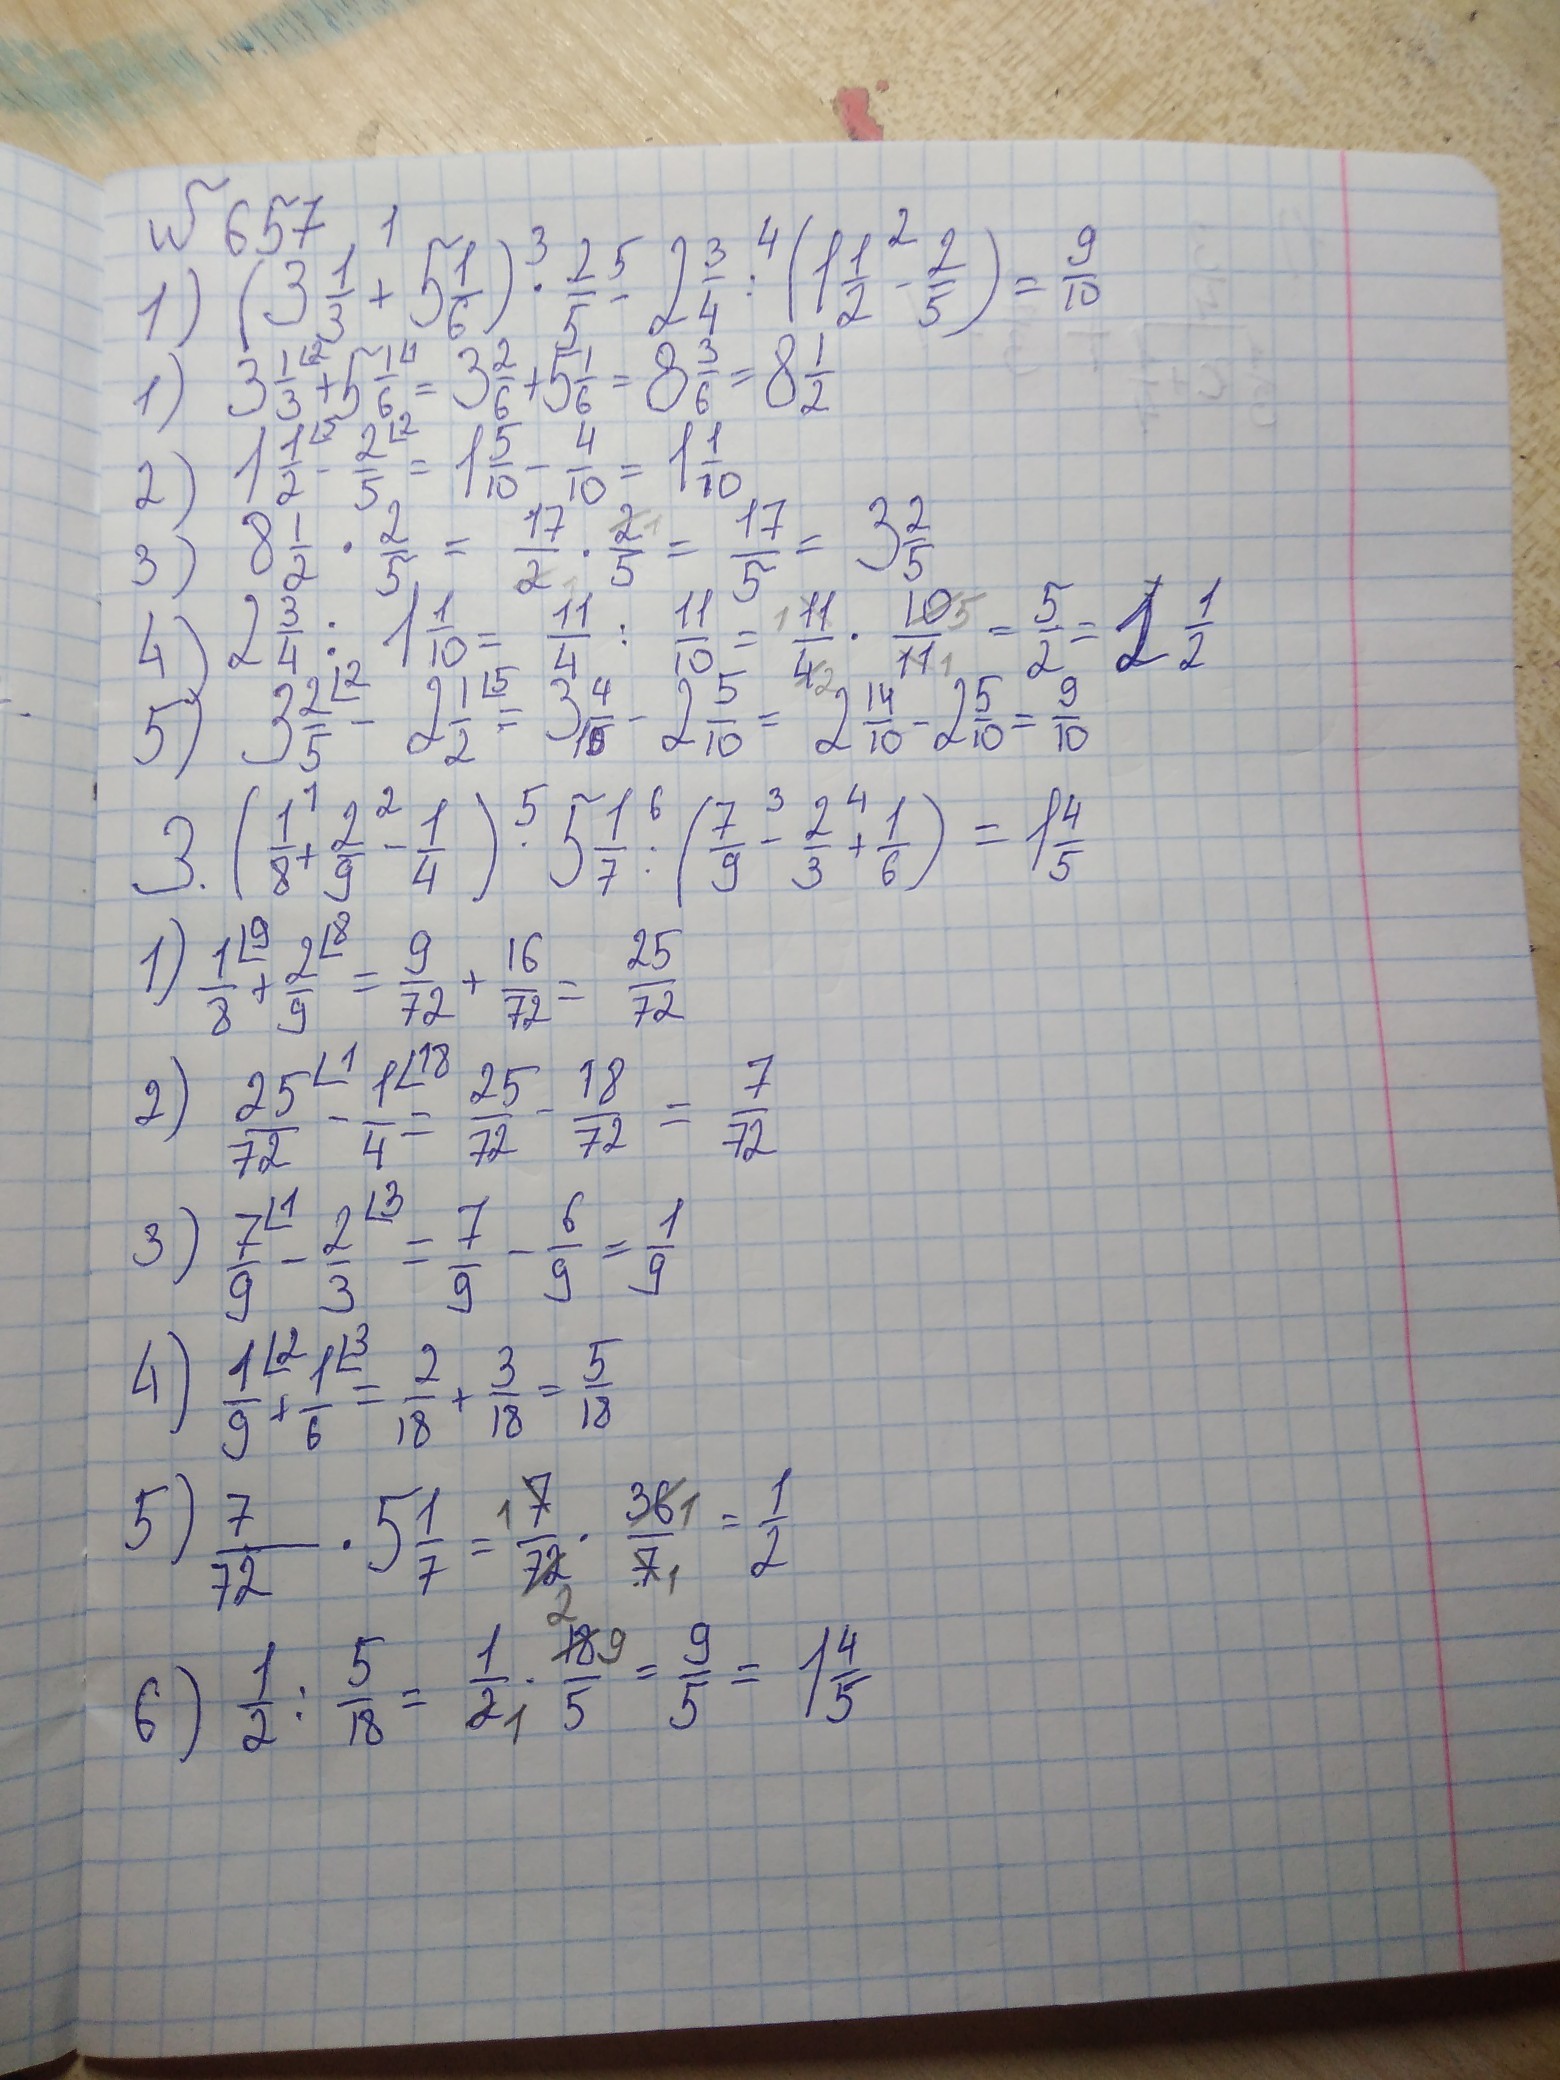 № 657
1) (3 1/3 +¹ 5 1/6) ·³ 2/5 -⁵ 2 3/4 :⁴ (1 1/2 -² 2/5) = 9/10
1) 3 1/3 ⌊2 + 5 1/6 ⌊1 = 3 2/6 + 5 1/6 = 8 3/6 = 8 1/2
2) 1 1/2 ⌊5 - 2/5 ⌊2 = 1 5/10 - 4/10 = 1 1/10
3) 8 1/2 · 2/5 = 17/2 · 2/5 = 17/5 = 3 2/5
4) 2 3/4 : 1 1/10 = 11/4 : 11/10 = 11/4 · 10/11 = 5/2 = 2 1/2
5) 3 2/5 ⌊2 - 2 1/2 ⌊5 = 3 4/10 - 2 5/10 = 2 14/10 - 2 5/10 = 9/10
3. (1/8 +¹ 2/9 -² 1/4) ·⁵ 5 1/7 :⁶ (7/9 -³ 2/3 +⁴ 1/6) = 1 4/5
1) 1/8 ⌊9 + 2/9 ⌊8 = 9/72 + 16/72 = 25/72
2) 25/72 ⌊1 - 1/4 ⌊18 = 25/72 - 18/72 = 7/72
3) 7/9 ⌊1 - 2/3 ⌊3 = 7/9 - 6/9 = 1/9
4) 1/9 ⌊2 + 1/6 ⌊3 = 2/18 + 3/18 = 5/18
5) 7/72 · 5 1/7 = 7/72 · 36/7 = 1/2
6) 1/2 : 5/18 = 1/2 · 18/5 = 9/5 = 1 4/5